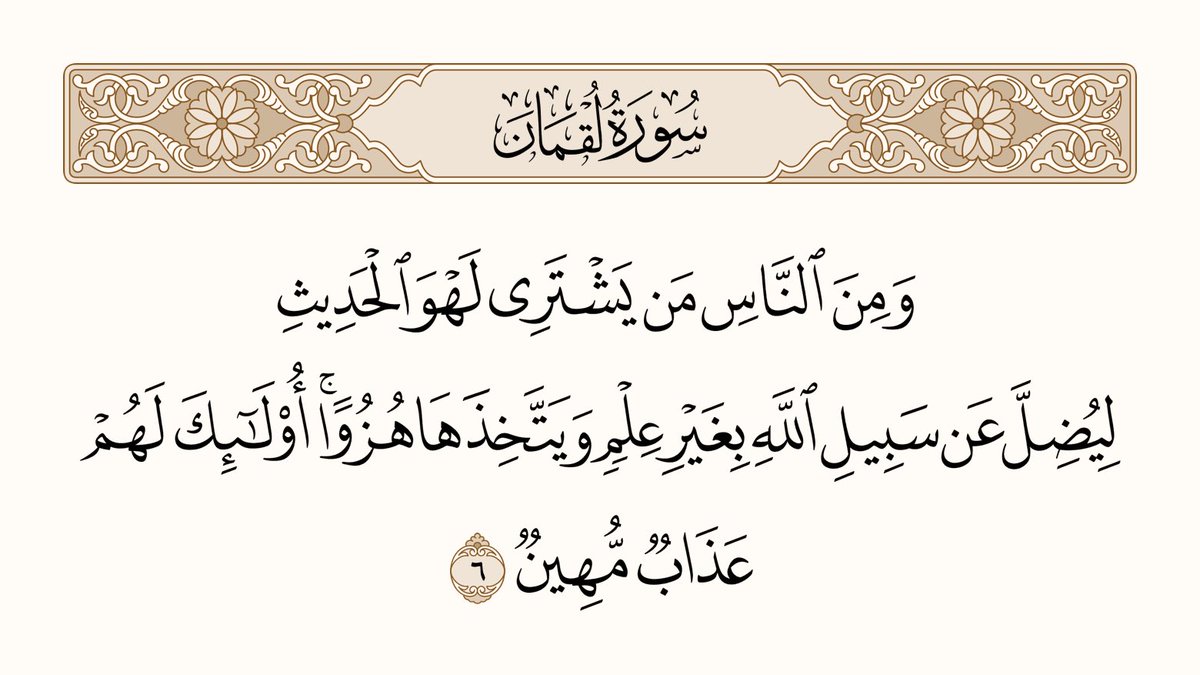 سُورَةُ لُقۡمَانَ
وَمِنَ ٱلنَّاسِ مَن يَشۡتَرِى لَهۡوَ ٱلۡحَدِيثِ
لِيُضِلَّ عَن سَبِيلِ ٱللَّهِ بِغَيۡرِ عِلۡمٖ وَيَتَّخِذَهَا هُزُوًاۚ أُوْلَـٰٓئِكَ لَهُمۡ
عَذَابٞ مُّهِينٞ ٦